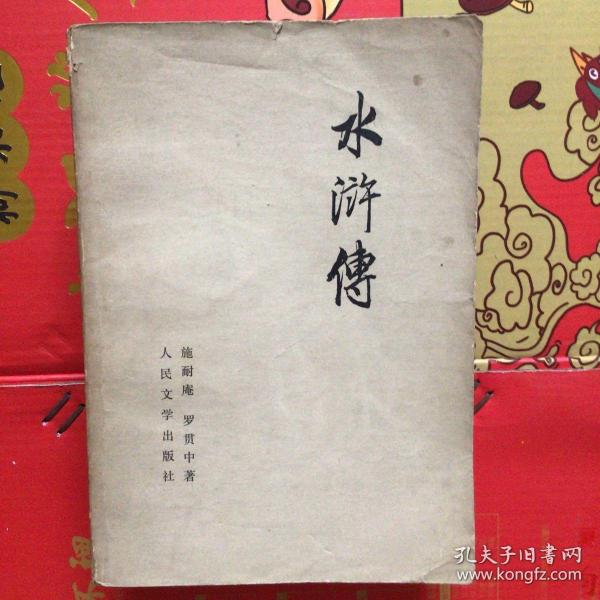 水滸傳
施耐庵 罗贯中著
人民文学出版社
孔夫子旧书网
www.kongfz.com